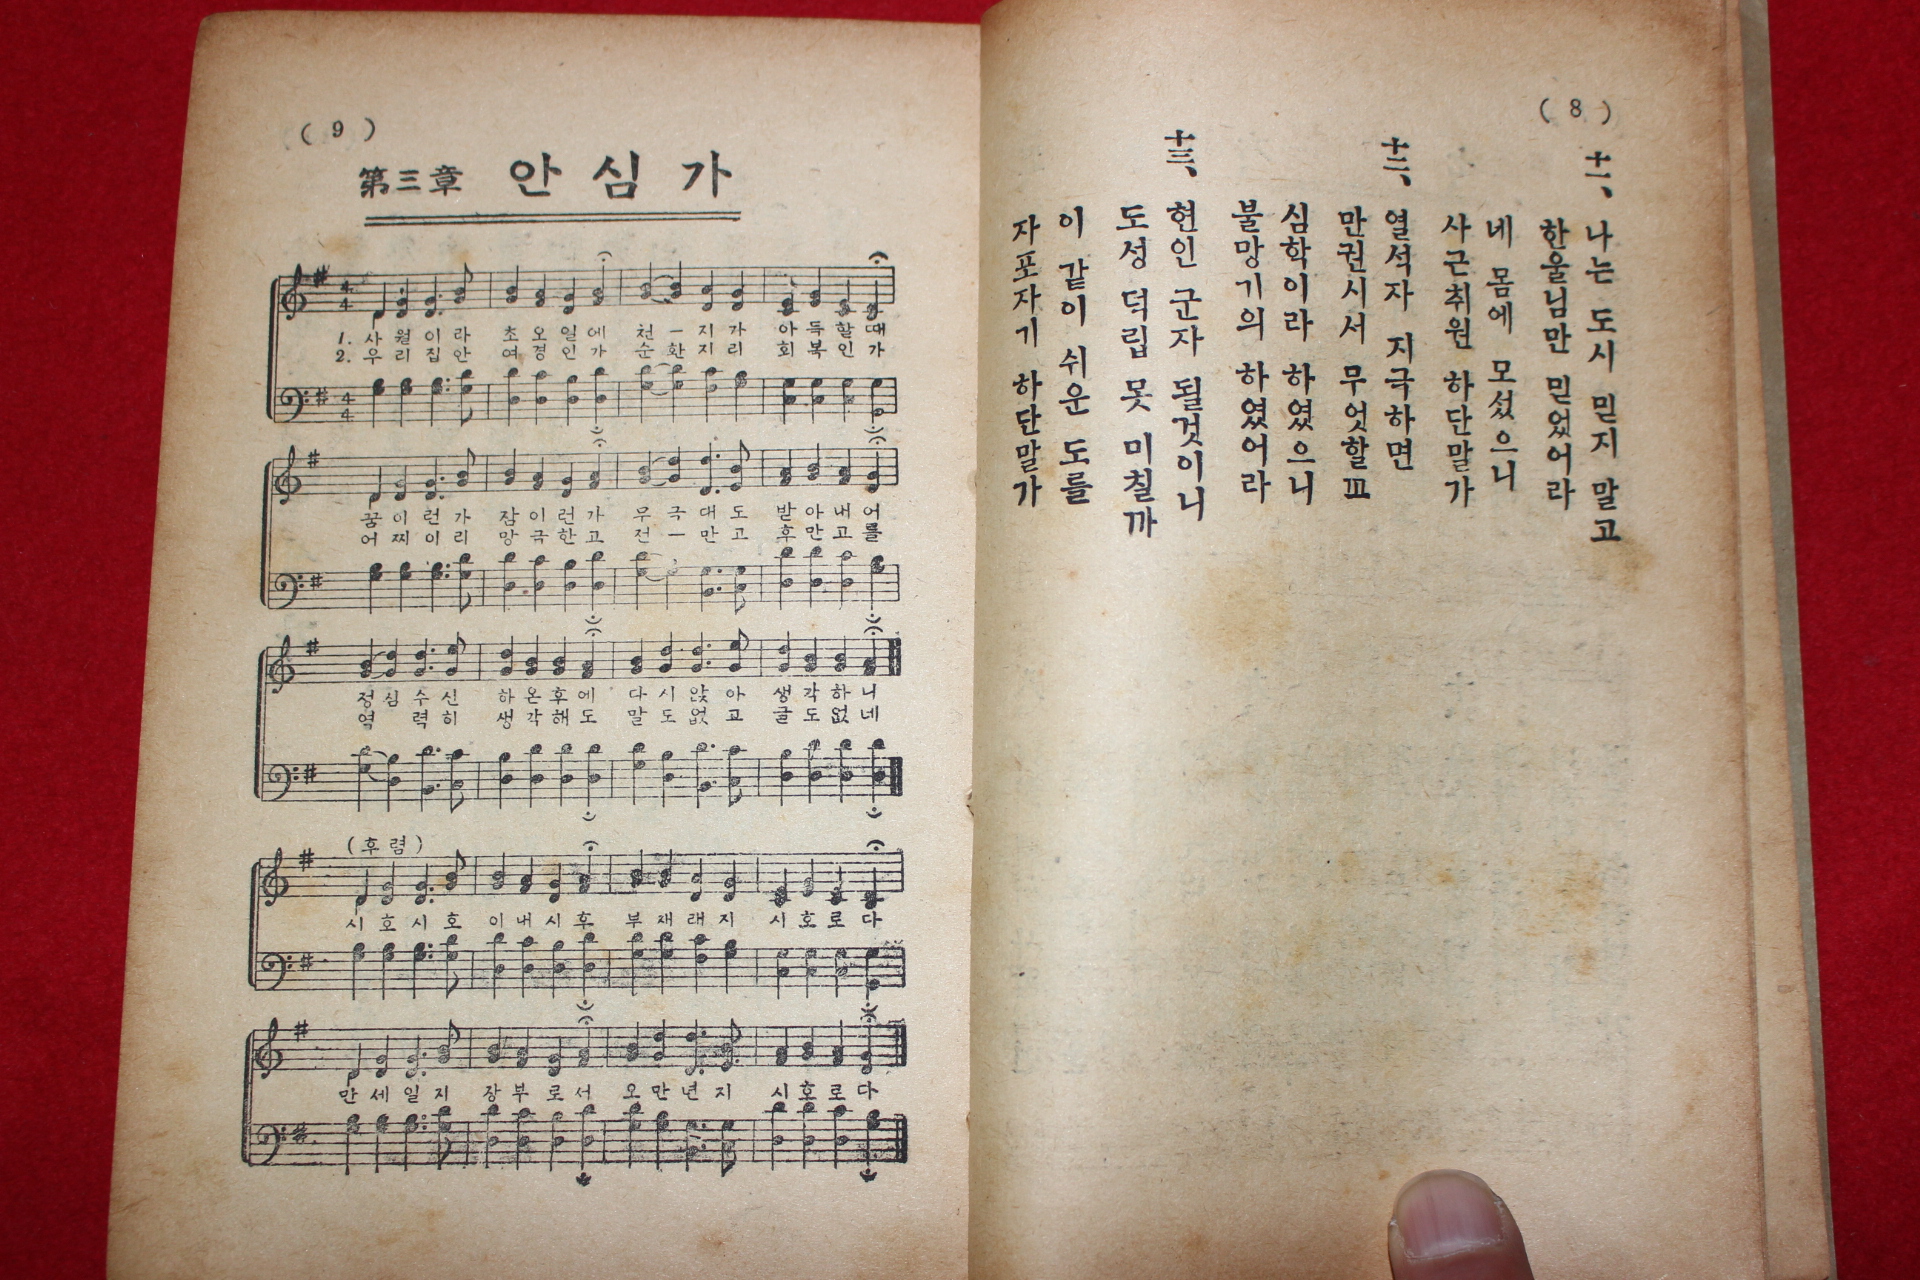 ( 8 )
十一、 나는 도시 믿지 말고
한울님만 믿었어라
네 몸에 모셨으니
사근취원 하단말가
十二、 열석자 지극하면
만권시서 무엇할꾜
심학이라 하였으니
불망기의 하였어라
十三、 현인 군자 될것이니
도성 덕립 못 미칠까
이 같이 쉬운 도를
자포자기 하단말가
( 9 )
第三章 안 심 가
1. 사 월 이 라 초 오 일 에 천 ー 지 가 아 득 할 때
2. 우 리 집 안 여 경 인 가 순 환 지 리 회 복 인 가
꿈 이 런 가 잠 이 런 가 무 극 대 도 받 아 내 어
어 찌 이 리 망 극 한 고 전 ー 만 고 후 만 고 를
정 심 수 신 하 온 후 에 다 시 앉 아 생 각 하 니
역 력 히 생 각 해 도 말 도 없 고 글 도 없 네
(후 렴)
시 호 시 호 이 내 시 호 부 재 래 지 시 호 로 다
만 세 일 지 장 부 로 서 오 만 년 지 시 호 로 다